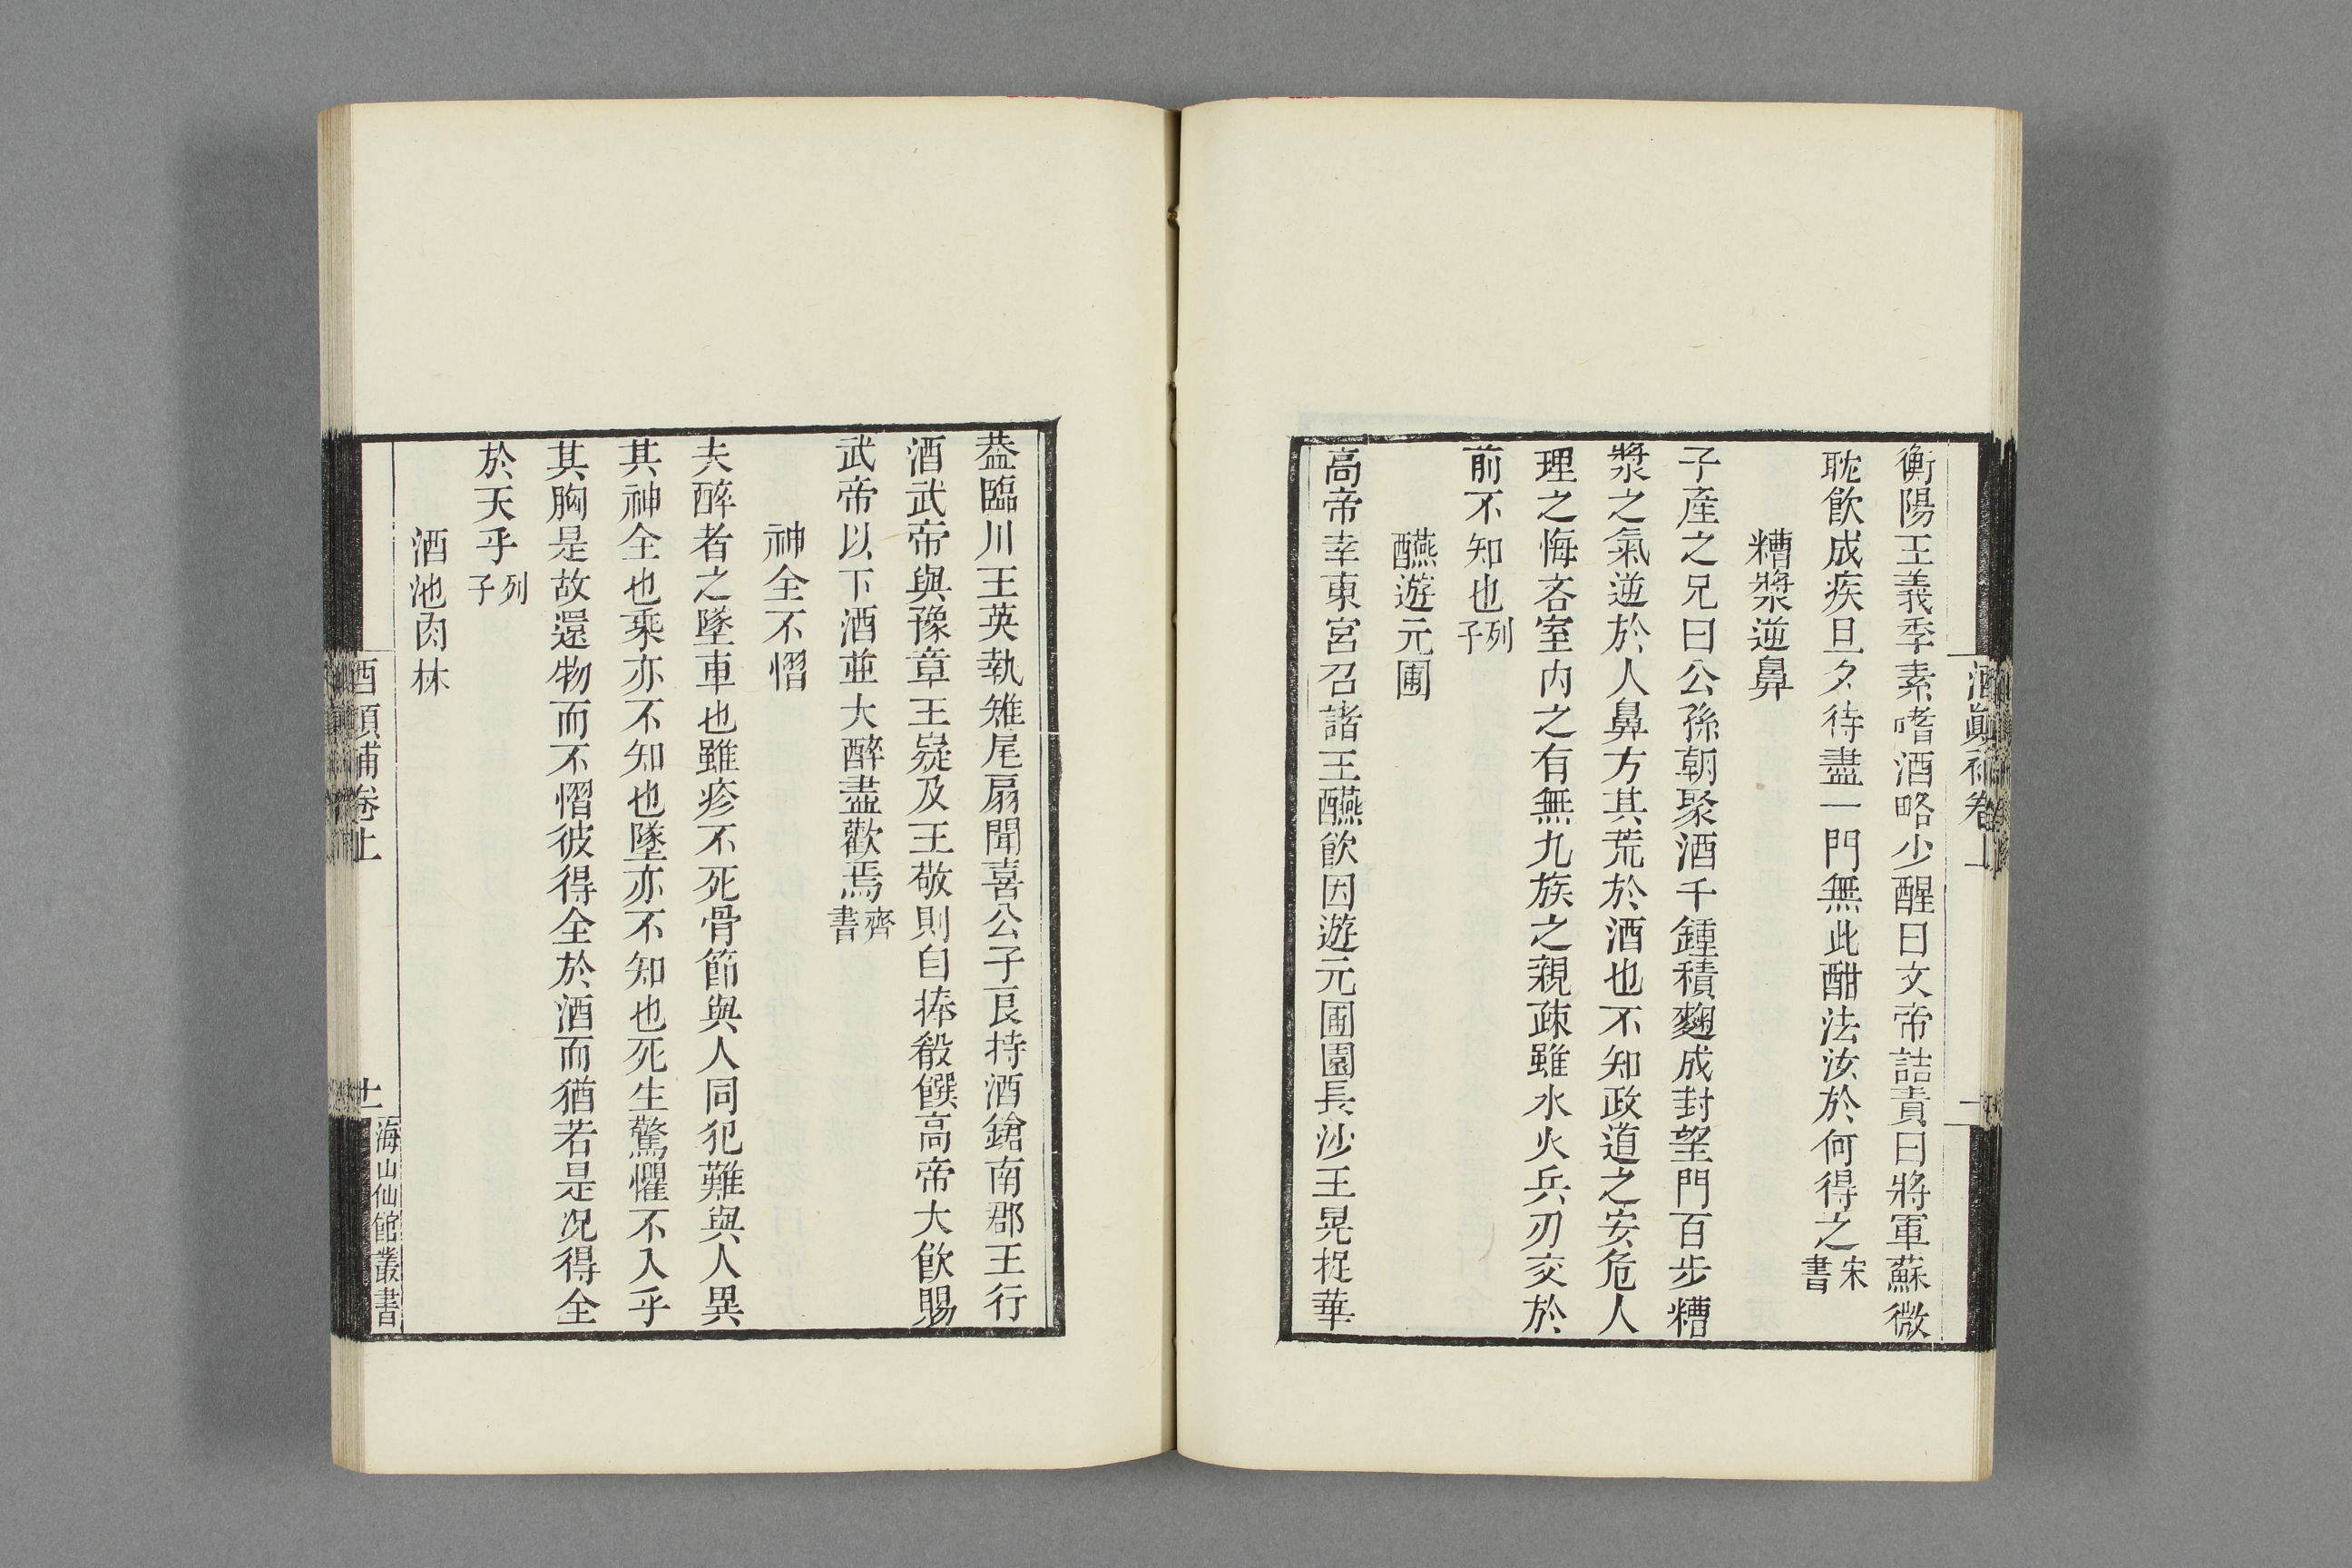 衡陽王義季素嗜酒略少醒日文帝詰責曰將軍蘇微
耽飲成疾旦夕待盡一門無此酣法汝於何得之宋書
糟漿逆鼻
子產之兄曰公孫朝聚酒千鍾積麴成封望門百步糟
漿之氣逆於人鼻方其荒於酒也不知政道之安危人
理之悔吝室内之有無九族之親疎雖水火兵刃交於
前不知也列子
醼遊元圃
高帝幸東宮召諸王醼飲因遊元圃園長沙王晃捉華
葢臨川王英執雉尾扇聞喜公子良持酒鎗南郡王行
酒武帝與豫章王嶷及王敬則自捧殽饌高帝大飲賜
武帝以下酒並大醉盡歡焉齊書
神全不慴
夫醉者之墜車也雖疹不死骨節與人同犯難與人異
其神全也乘亦不知也墜亦不知也死生驚懼不入乎
其胸是故遻物而不慴彼得全於酒而猶若是况得全
於天乎列子
酒池肉林
酒顚補卷上
十一
海山仙館叢書